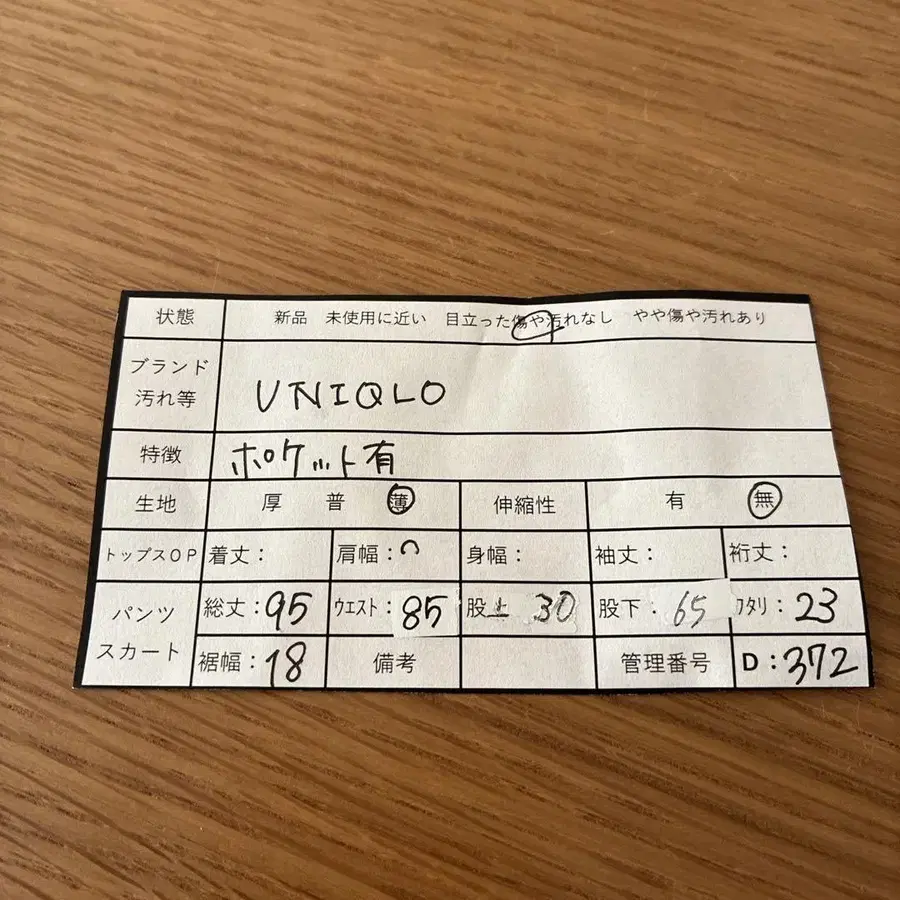 状態 新品 未使用に近い 目立った傷や汚れなし やや傷や汚れあり
ブランド
汚れ等 UNIQLO
特徴 ポケット有
生地 厚 普 薄 伸縮性 有 無
トップスOP 着丈: 肩幅: 身幅: 袖丈: 裄丈:
パンツ
スカート
総丈:95 ウエスト:85 股上 30 股下:65 ワタリ:23
裾幅:18 備考 管理番号 D:372